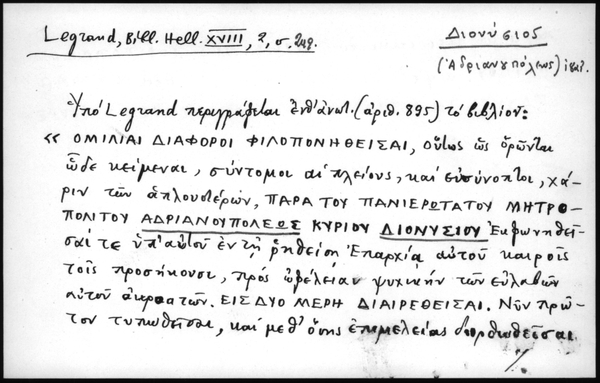 Legrand, Bibl. Hell. XVIII, 2, σ. 249.
Διονύσιος
(Ἀδριανουπόλεως)
Ὑπό Legrand περιγράφεται ἐνθ' ἀνωτ. (ἀριθ. 895) τό βιβλίον:
« ΟΜΙΛΙΑΙ ΔΙΑΦΟΡΟΙ ΦΙΛΟΠΟΝΗΘΕΙΣΑΙ, οὕτως ὡς ὁρῶνται
ὧδε κείμεναι, σύντομοι αἱ πλείους, καί εὐσύνοπτοι, χά-
ριν τῶν ἁπλουστέρων, ΠΑΡΑ ΤΟΥ ΠΑΝΙΕΡΩΤΑΤΟΥ ΜΗΤΡΟ-
ΠΟΛΙΤΟΥ ΑΔΡΙΑΝΟΥΠΟΛΕΩΣ ΚΥΡΙΟΥ ΔΙΟΝΥΣΙΟΥ Ἐκφωνηθεῖ-
σαί τε ὑπ' αὐτοῦ ἐν τῇ ῥηθείσῃ Ἐπαρχίᾳ αὐτοῦ καιροῖς
τοῖς προσήκουσι, πρός ὠφέλειαν ψυχικήν τῶν εὐλαβῶν
αὐτοῦ ἀκροατῶν. ΕΙΣ ΔΥΟ ΜΕΡΗ ΔΙΑΙΡΕΘΕΙΣΑΙ. Νῦν πρῶ-
τον τυπωθεῖσαι, καί μεθ' ὅσης ἐπιμελείας διορθωθεῖσαι.
./.